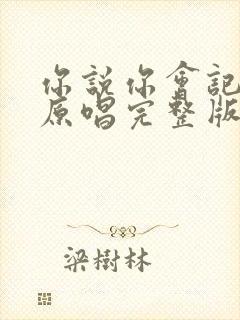 你說你會記
原唱完整版
梁樹林